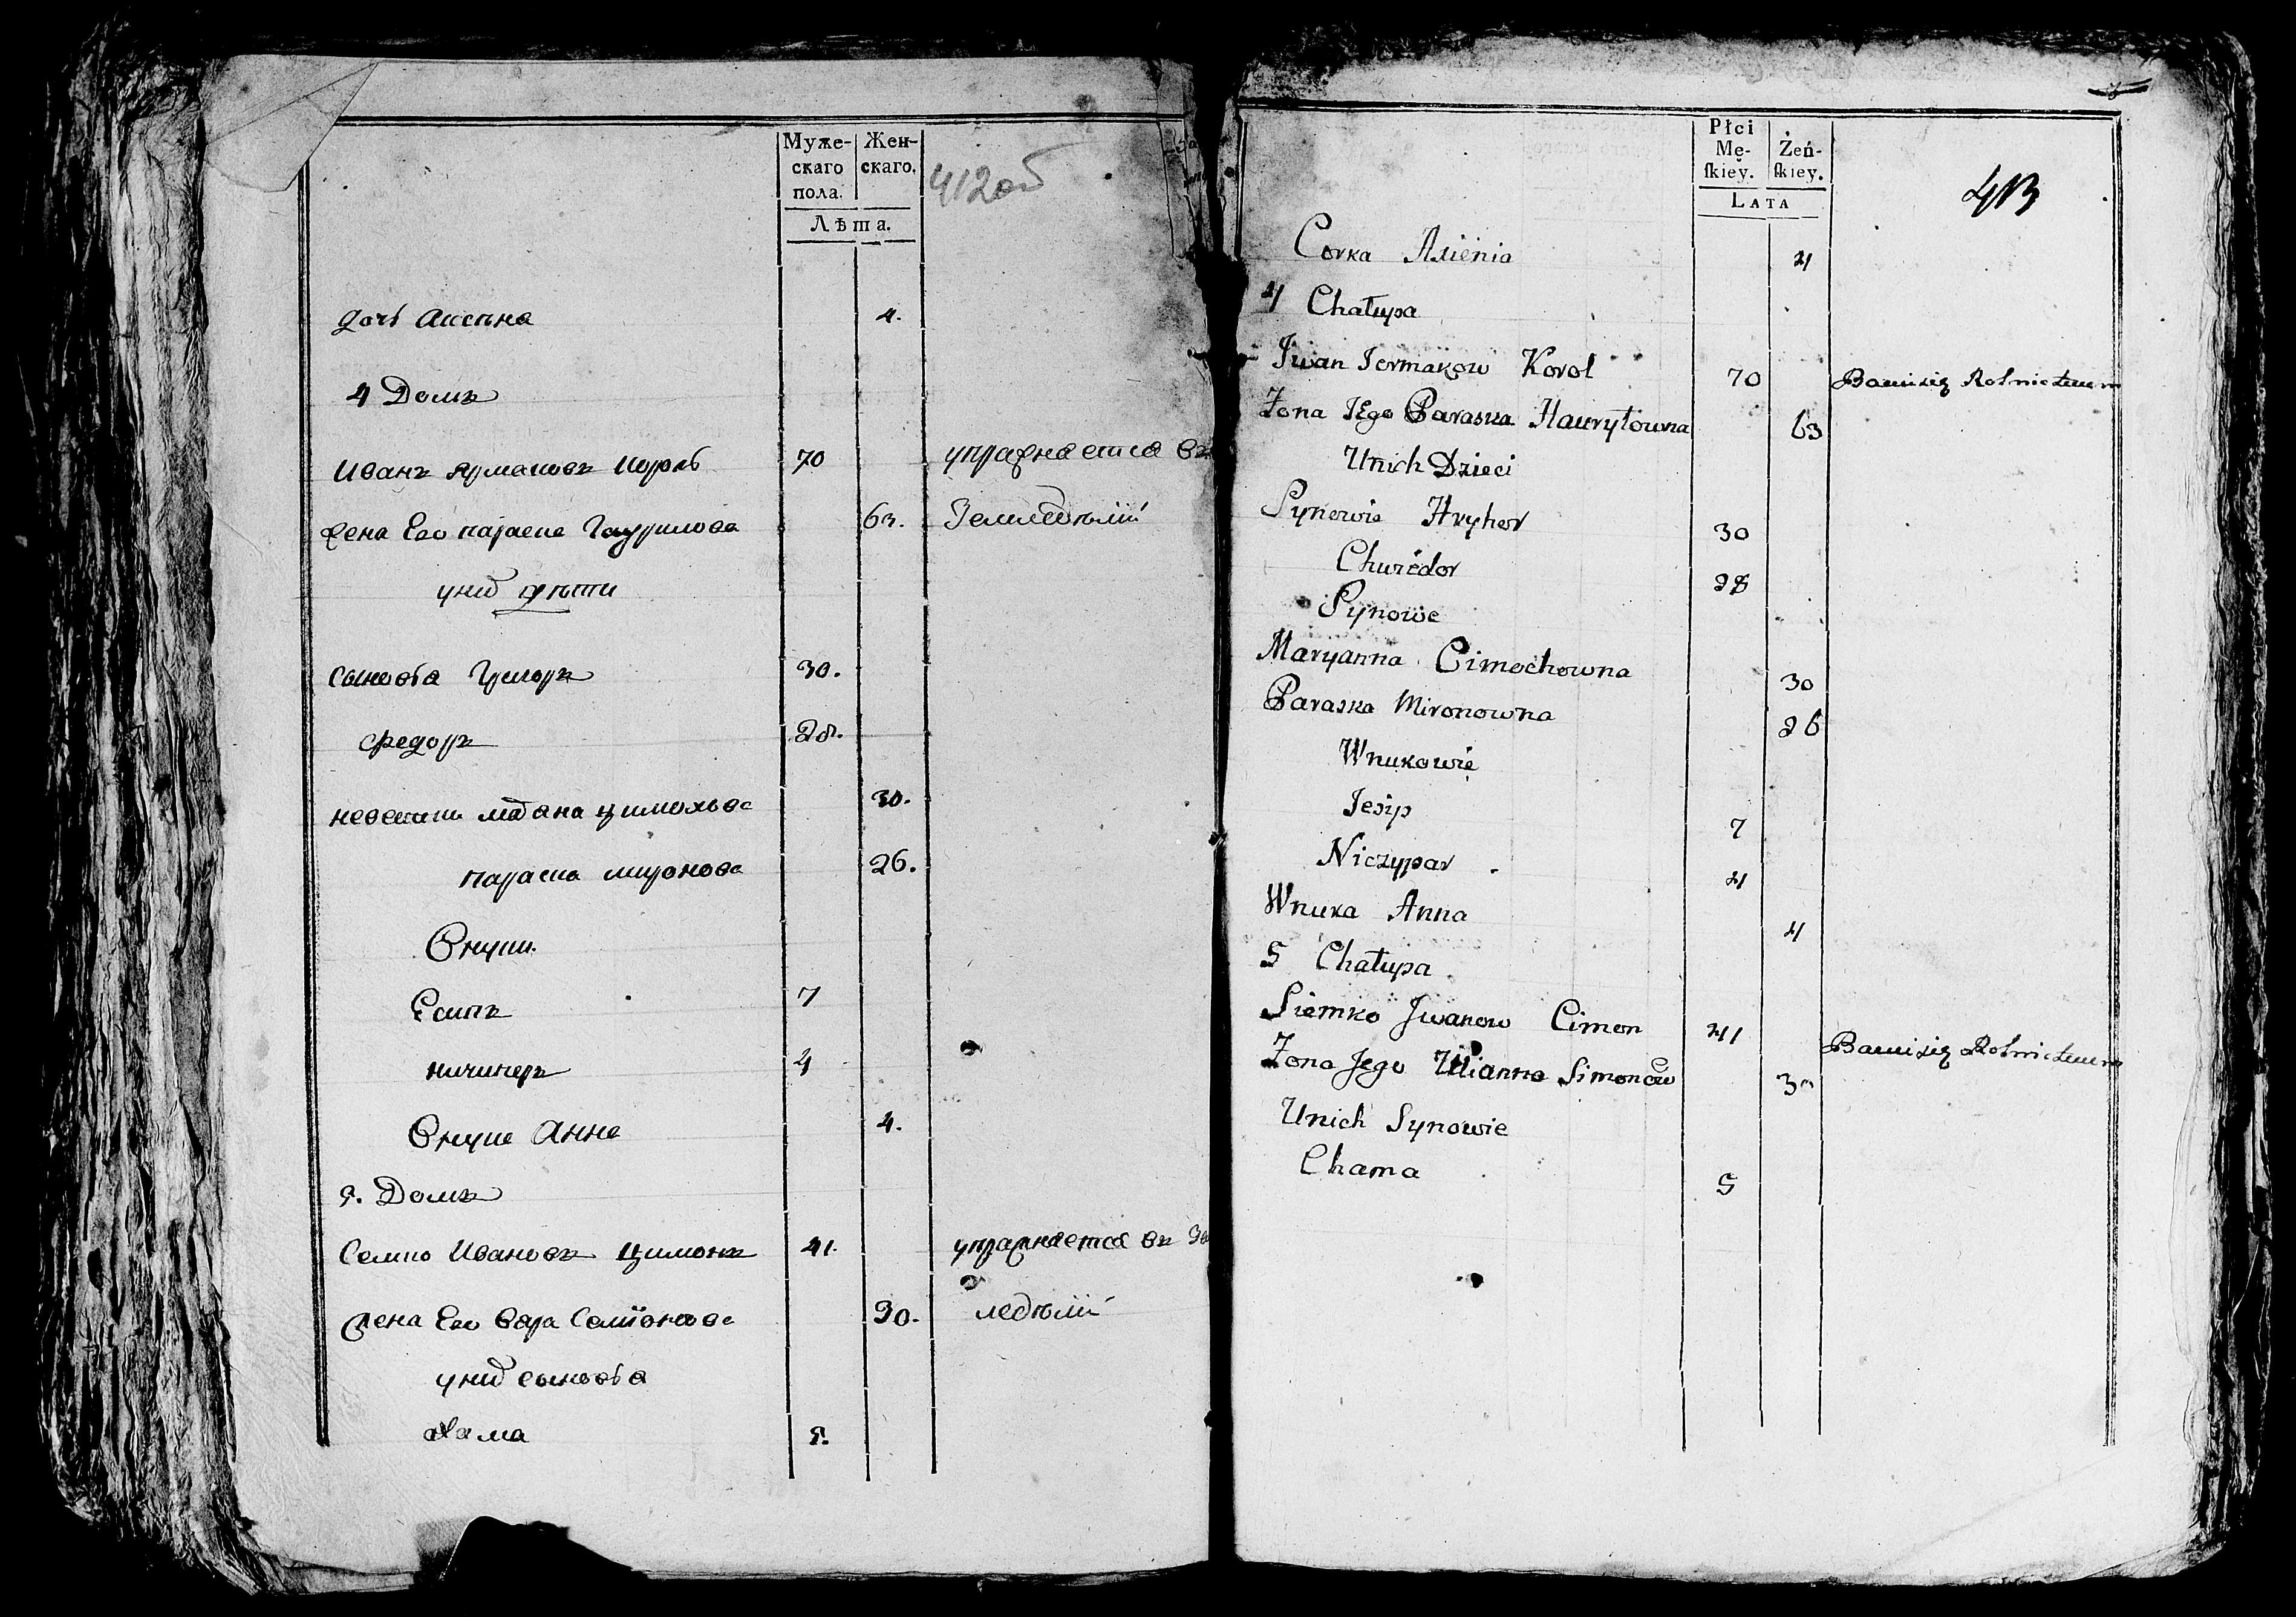 Муже-
скаго
пола.
Жен-
скаго.
Лѣта.
412об
дочь Аксѣня
4.
4 Домъ
Иванъ Ярмаковъ Король
70
упражняется въ
жена Его параска Гаурилова
63.
Земледѣлiи
уних дѣти
сыновья Григоръ
30.
Федоръ
28.
невестки марьяна цимохова
30.
параска миронова
26.
Внуки
Есипъ
7
ничипоръ
4
Внука Анна
4.
5. Домъ
Семко Ивановъ Цимонъ
41.
упражняется въ Зе
жена Его Семiонова
30.
мледѣлiи
уних сыновья
Хама
5.
Płci
Mę-
ſkiey.
Żeń-
ſkiey.
LATA
413
Corka Axienia
4
4 Chałupa
Jwan Jermakow Korol
70
Bawisię Rolnictwem
Zona Jego Paraska Hawryłowna
63
Unich Dzieci
Synowie Hryhor
30
Chwiedor
28
Synowe
Maryanna Cimochowna
30
Paraska Mironowna
26
Wnukowie
Jesip
7
Niczypar
4
Wnuka Anna
4
5 Chałupa
Siemko Jwanow Cimon
41
Bawisię Rolnictwem
Zona Jego Ulianna Simonow
30
Unich Synowie
Chama
5